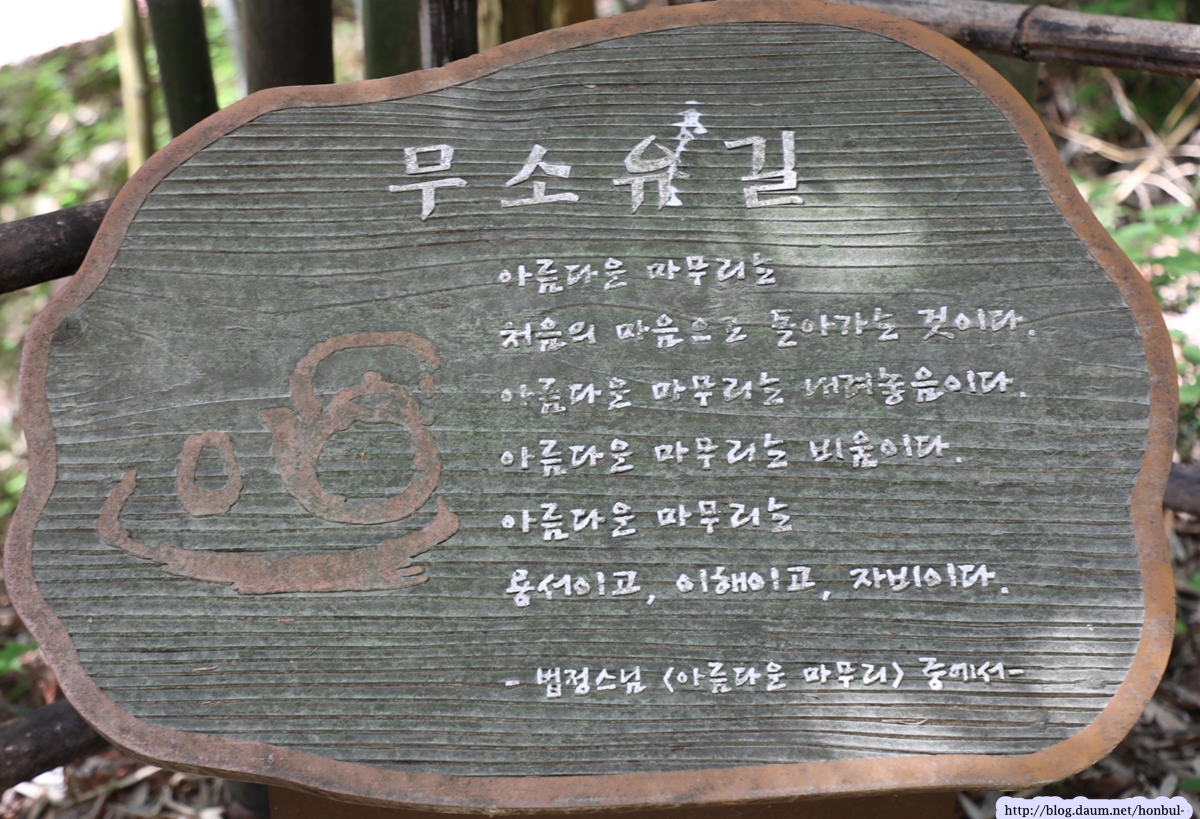 무소유길
아름다운 마무리는
처음의 마음으로 돌아가는 것이다.
아름다운 마무리는 내려놓음이다.
아름다운 마무리는 비움이다.
아름다운 마무리는
용서이고, 이해이고, 자비이다.
- 법정스님 <아름다운 마무리> 중에서-
http://blog.daum.net/honbul-